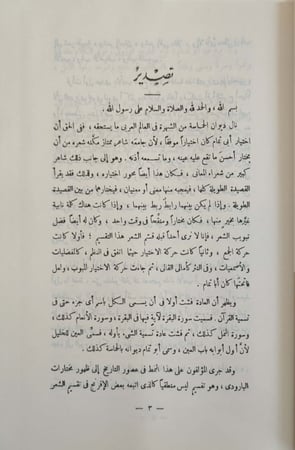 تصدير
بسم الله ، والحمد لله والصلاة والسلام على رسول الله .
نال ديوان الحماسة من الشهرة في العالم العربى ما يستحقه ، فى الحق أن
اختيار أبى تمام كان اختياراً موفقاً ، لأن جامعه شاعر ممتاز مكّنه شعره من أن
يختار أحسن ما تقع عليه عينه ، وما تسمعه أذنه . وهو إلى جانب ذلك شاهر
كبير من شعراء المعانى ، فكان هذا أيضاً محور اختياره ، ولذلك فقد يقرأ
القصيدة الطويلة كلها ، فيعجبه منها معنى أو معنيان ، فيختارهما من بين القصيدة
الطويلة . وإذا لم يكن بينهما رابط ربط بينهما ، وإذا كانت هناك كلمة نابية
غيّرها بخير منها ، فكان مختاراً ومنقّحاً فى وقت واحد ، وكان له أيضاً فضل
تبويب الشعر ، فإنا لا نرى أحداً قبله قسم الشعر هذا التقسيم ؛ فأولا كانت
حركة الجمع ، وثانياً كانت حركة الاختيار حيثما اتفق فى النظم ، كالمفضليات
والأصمعيات ، وفى النثر كأمالى القالى ، ثم جاءت حركة الاختيار المبوب ، ولعل
فاتحتها كان أبا تمام .
ويظهر أن العادة قد فشت أولا فى أن يسمى الكل باسم أى جزء حتى فى
تسمية القرآن . فسميت سورة البقرة لآية فيها فى البقرة ، وسورة الأنعام كذلك ،
وسورة النمل كذلك ، ثم فشت عادة تسمية الشىء بأوله ، فسمى العين للخليل
لأن أول أبوابه باب العين ، وسمى أبو تمام ديوانه بالحماسة كذلك .
وقد جرى المؤلفون على هذا النمط فى عصور التاريخ إلى ظهور مختارات
البارودى ، وهو تقسيم ليس منطقياً كالذى اتبعه بعض الإفرنج فى تقسيم الشعر
— ٣ —